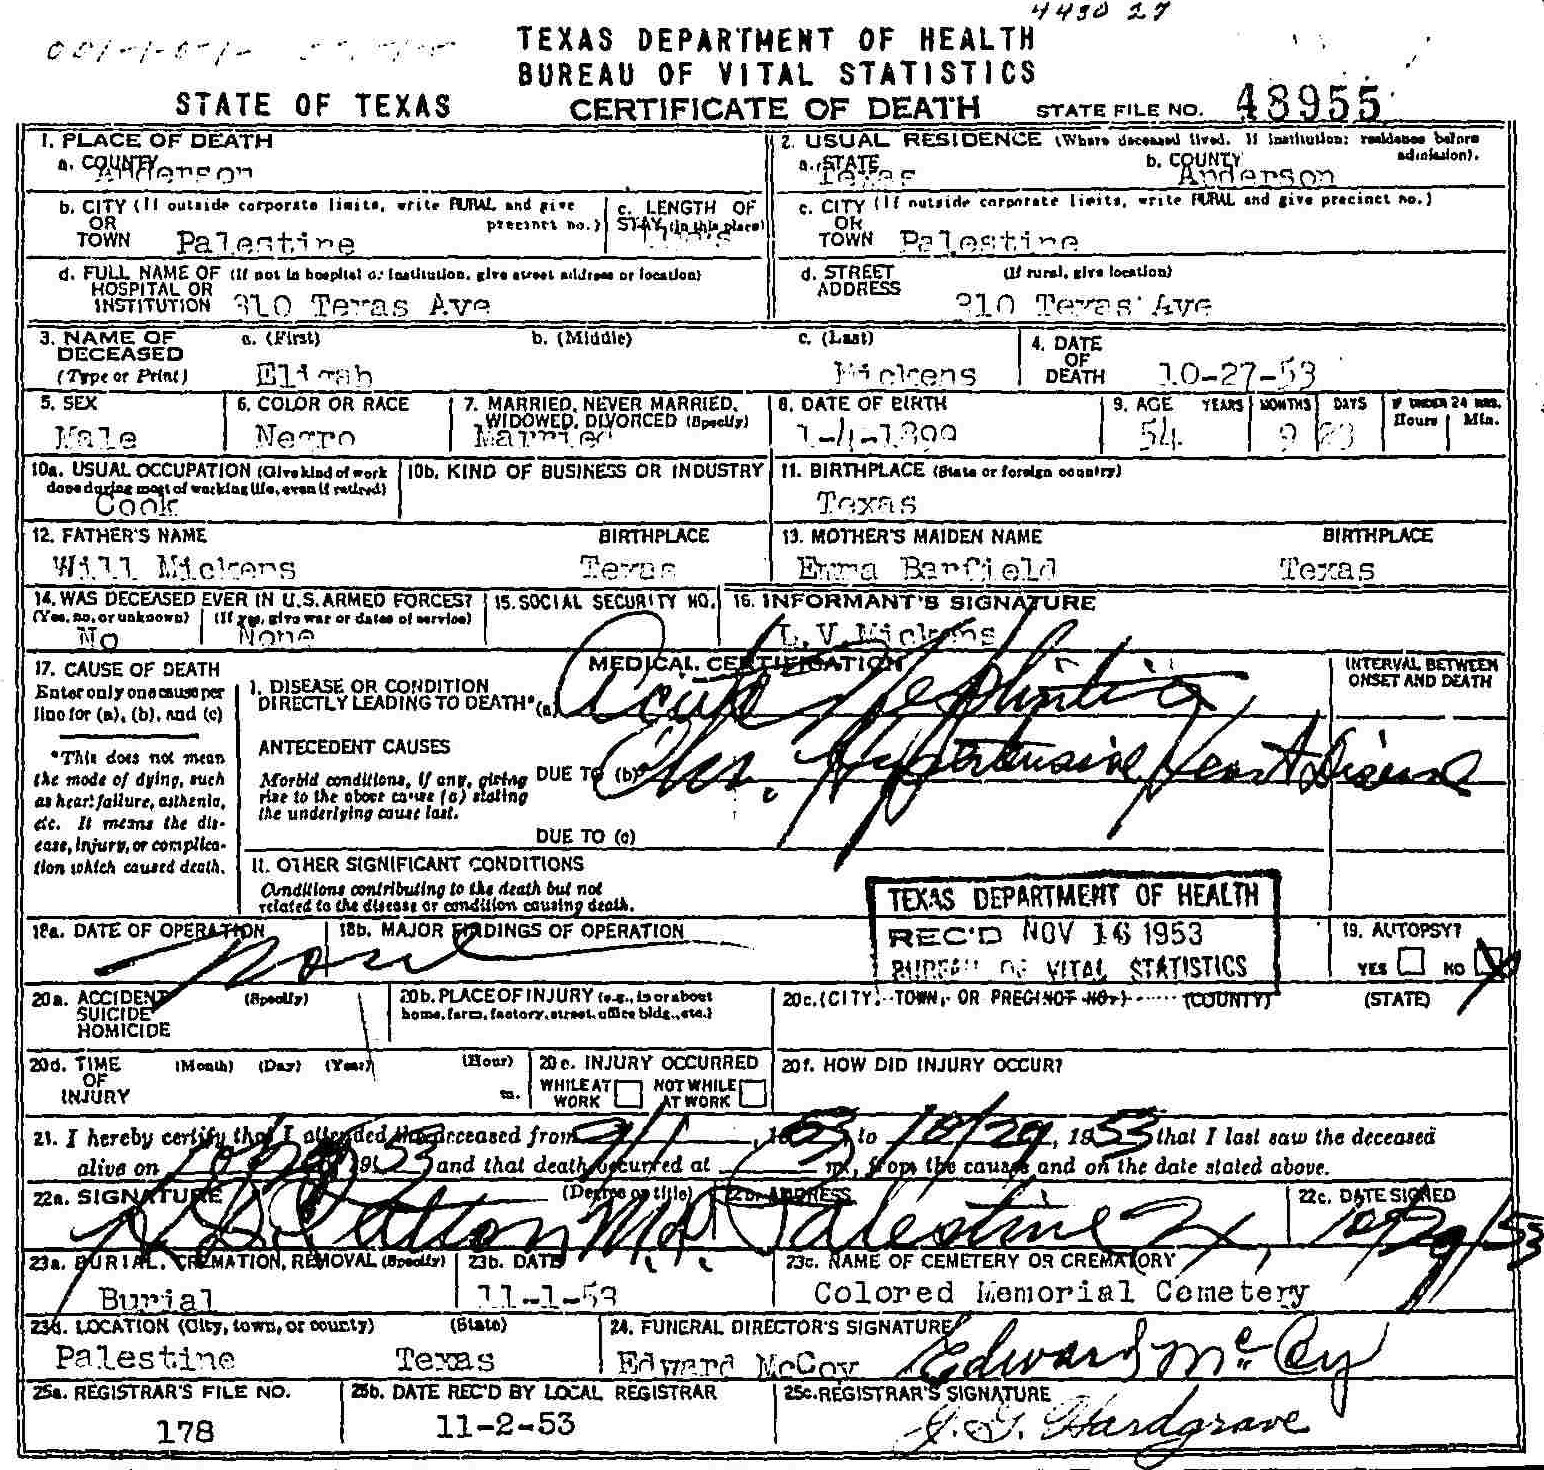 4430 27
TEXAS DEPARTMENT OF HEALTH
BUREAU OF VITAL STATISTICS
STATE OF TEXAS CERTIFICATE OF DEATH STATE FILE NO. 48955
1. PLACE OF DEATH 2. USUAL RESIDENCE (Where deceased lived. If institution: residence before admission).
a. COUNTY Anderson a. STATE Texas b. COUNTY Anderson
b. CITY (If outside corporate limits, write RURAL and give precinct no.) OR TOWN Palestine c. LENGTH OF STAY (in this place) c. CITY (If outside corporate limits, write RURAL and give precinct no.) OR TOWN Palestine
d. FULL NAME OF (If not in hospital or institution, give street address or location) HOSPITAL OR INSTITUTION 310 Texas Ave d. STREET ADDRESS (If rural, give location) 310 Texas Ave
3. NAME OF DECEASED (Type or Print) a. (First) b. (Middle) c. (Last) 4. DATE OF DEATH
Eligah Mickens 10-27-53
5. SEX 6. COLOR OR RACE 7. MARRIED, NEVER MARRIED, WIDOWED, DIVORCED (Specify) 8. DATE OF BIRTH 9. AGE YEARS MONTHS DAYS IF UNDER 24 HRS. Hours Min.
Male Negro Married 1-4-1899 54 9 23
10a. USUAL OCCUPATION (Give kind of work done during most of working life, even if retired) 10b. KIND OF BUSINESS OR INDUSTRY 11. BIRTHPLACE (State or foreign country)
Cook Texas
12. FATHER'S NAME BIRTHPLACE 13. MOTHER'S MAIDEN NAME BIRTHPLACE
Will Mickens Texas Emma Barfield Texas
14. WAS DECEASED EVER IN U.S. ARMED FORCES? 15. SOCIAL SECURITY NO. 16. INFORMANT'S SIGNATURE
(Yes, no, or unknown) (If yes, give war or dates of service)
No None L.V.Mickens
17. CAUSE OF DEATH MEDICAL CERTIFICATION INTERVAL BETWEEN ONSET AND DEATH
Enter only one cause per line for (a), (b), and (c)
I. DISEASE OR CONDITION DIRECTLY LEADING TO DEATH* (a) Acute Nephritis
*This does not mean the mode of dying, such as heart failure, asthenia, etc. It means the disease, injury, or complication which caused death.
ANTECEDENT CAUSES
Morbid conditions, if any, giving rise to the above cause (a) stating the underlying cause last.
DUE TO (b) Chr. Hypertensive Heart Disease
DUE TO (c)
II. OTHER SIGNIFICANT CONDITIONS
Conditions contributing to the death but not related to the disease or condition causing death.
TEXAS DEPARTMENT OF HEALTH
REC'D NOV 16 1953
BUREAU OF VITAL STATISTICS
18a. DATE OF OPERATION 18b. MAJOR FINDINGS OF OPERATION 19. AUTOPSY?
None YES NO X
20a. ACCIDENT SUICIDE HOMICIDE (Specify) 20b. PLACE OF INJURY (e.g., in or about home, farm, factory, street, office bldg., etc.) 20c. (CITY, TOWN, OR PRECINCT NO.) (COUNTY) (STATE)
20d. TIME OF INJURY (Month) (Day) (Year) (Hour) m. 20e. INJURY OCCURRED WHILE AT WORK NOT WHILE AT WORK 20f. HOW DID INJURY OCCUR?
21. I hereby certify that I attended the deceased from 9/1, 1953, to 10/29, 1953 that I last saw the deceased
alive on 1953 and that death occurred at m., from the causes and on the date stated above.
22a. SIGNATURE (Degree or title) 22b. ADDRESS 22c. DATE SIGNED
Patton M.D. Palestine Tx, 10/29/53
23a. BURIAL, CREMATION, REMOVAL (Specify) 23b. DATE 23c. NAME OF CEMETERY OR CREMATORY
Burial 11-1-53 Colored Memorial Cemetery
23d. LOCATION (City, town, or county) (State) 24. FUNERAL DIRECTOR'S SIGNATURE
Palestine Texas Edward McCoy Edward McCoy
25a. REGISTRAR'S FILE NO. 25b. DATE REC'D BY LOCAL REGISTRAR 25c. REGISTRAR'S SIGNATURE
178 11-2-53 J. G. Hardgrave